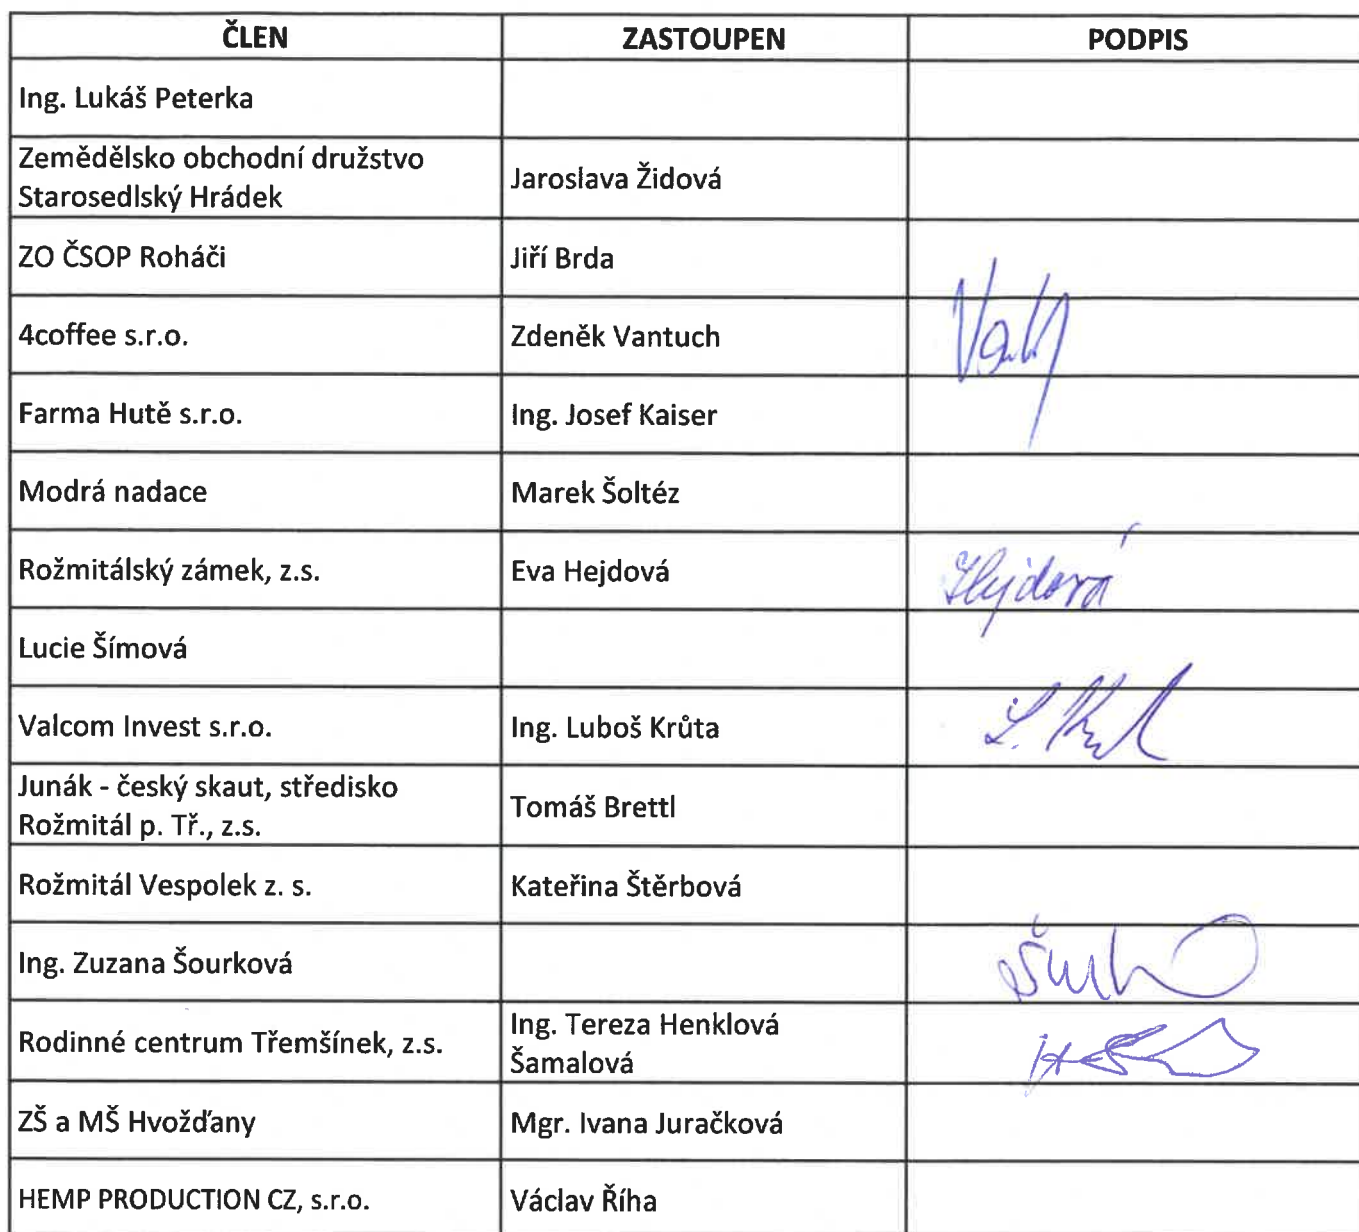 ČLEN ZASTOUPEN PODPIS
Ing. Lukáš Peterka
Zemědělsko obchodní družstvo
Starosedlský Hrádek
Jaroslava Židová
ZO ČSOP Roháči Jiří Brda
4coffee s.r.o. Zdeněk Vantuch
Farma Hutě s.r.o. Ing. Josef Kaiser
Modrá nadace Marek Šoltéz
Rožmitálský zámek, z.s. Eva Hejdová Hejdová
Lucie Šímová
Valcom Invest s.r.o. Ing. Luboš Krůta
Junák - český skaut, středisko
Rožmitál p. Tř., z.s.
Tomáš Brettl
Rožmitál Vespolek z. s. Kateřina Štěrbová
Ing. Zuzana Šourková
Rodinné centrum Třemšínek, z.s.
Ing. Tereza Henklová
Šamalová
ZŠ a MŠ Hvožďany Mgr. Ivana Juračková
HEMP PRODUCTION CZ, s.r.o. Václav Říha